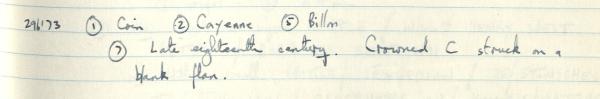 296173 ① Coin ② Cayenne ⑤ Billon
⑦ Late eighteenth century. Crowned C struck on a
blank flan.